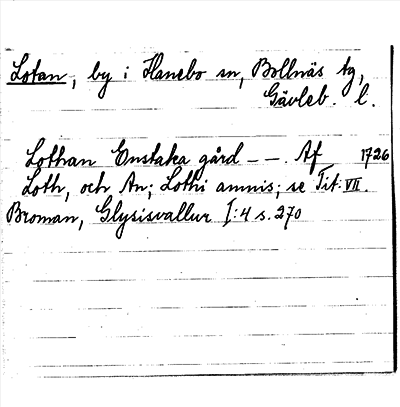 Lotan, by i Hanebo sn, Bollnäs tg,
Gävleb. l.
Lothan Enstaka gård – –. Af 1726
Loth, och An; Lothi amnis; se Tit: VII.
Broman, Glysisvallur I:4 s. 270